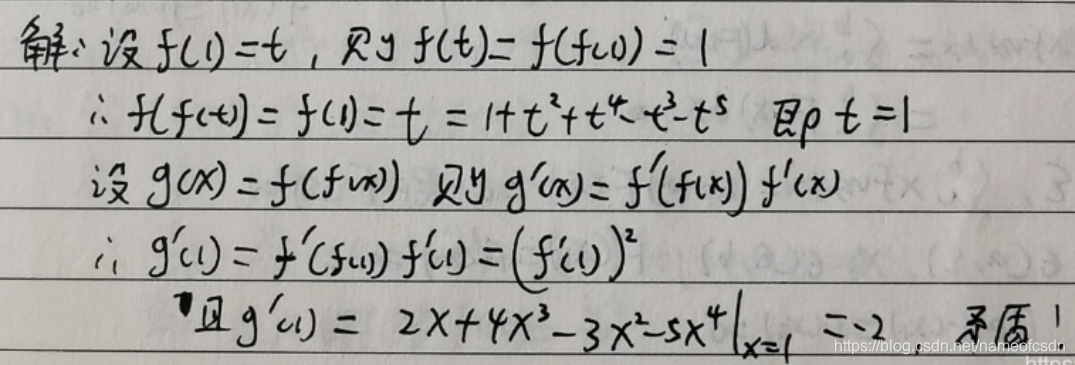 解: 设 f(1)=t, 则 f(t)=f(f(1))=1
∴ f(f(t))=f(1)=t=1+t²+t⁴-t³-t⁵ 即 t=1
设 g(x)=f(f(x)) 则 g'(x)=f'(f(x)) f'(x)
∴ g'(1)=f'(f(1)) f'(1)=(f'(1))²
且 g'(1)= 2x+4x³-3x²-5x⁴|x=1 =-2, 矛盾!
https://blog.csdn.net/nameofcsdn
https